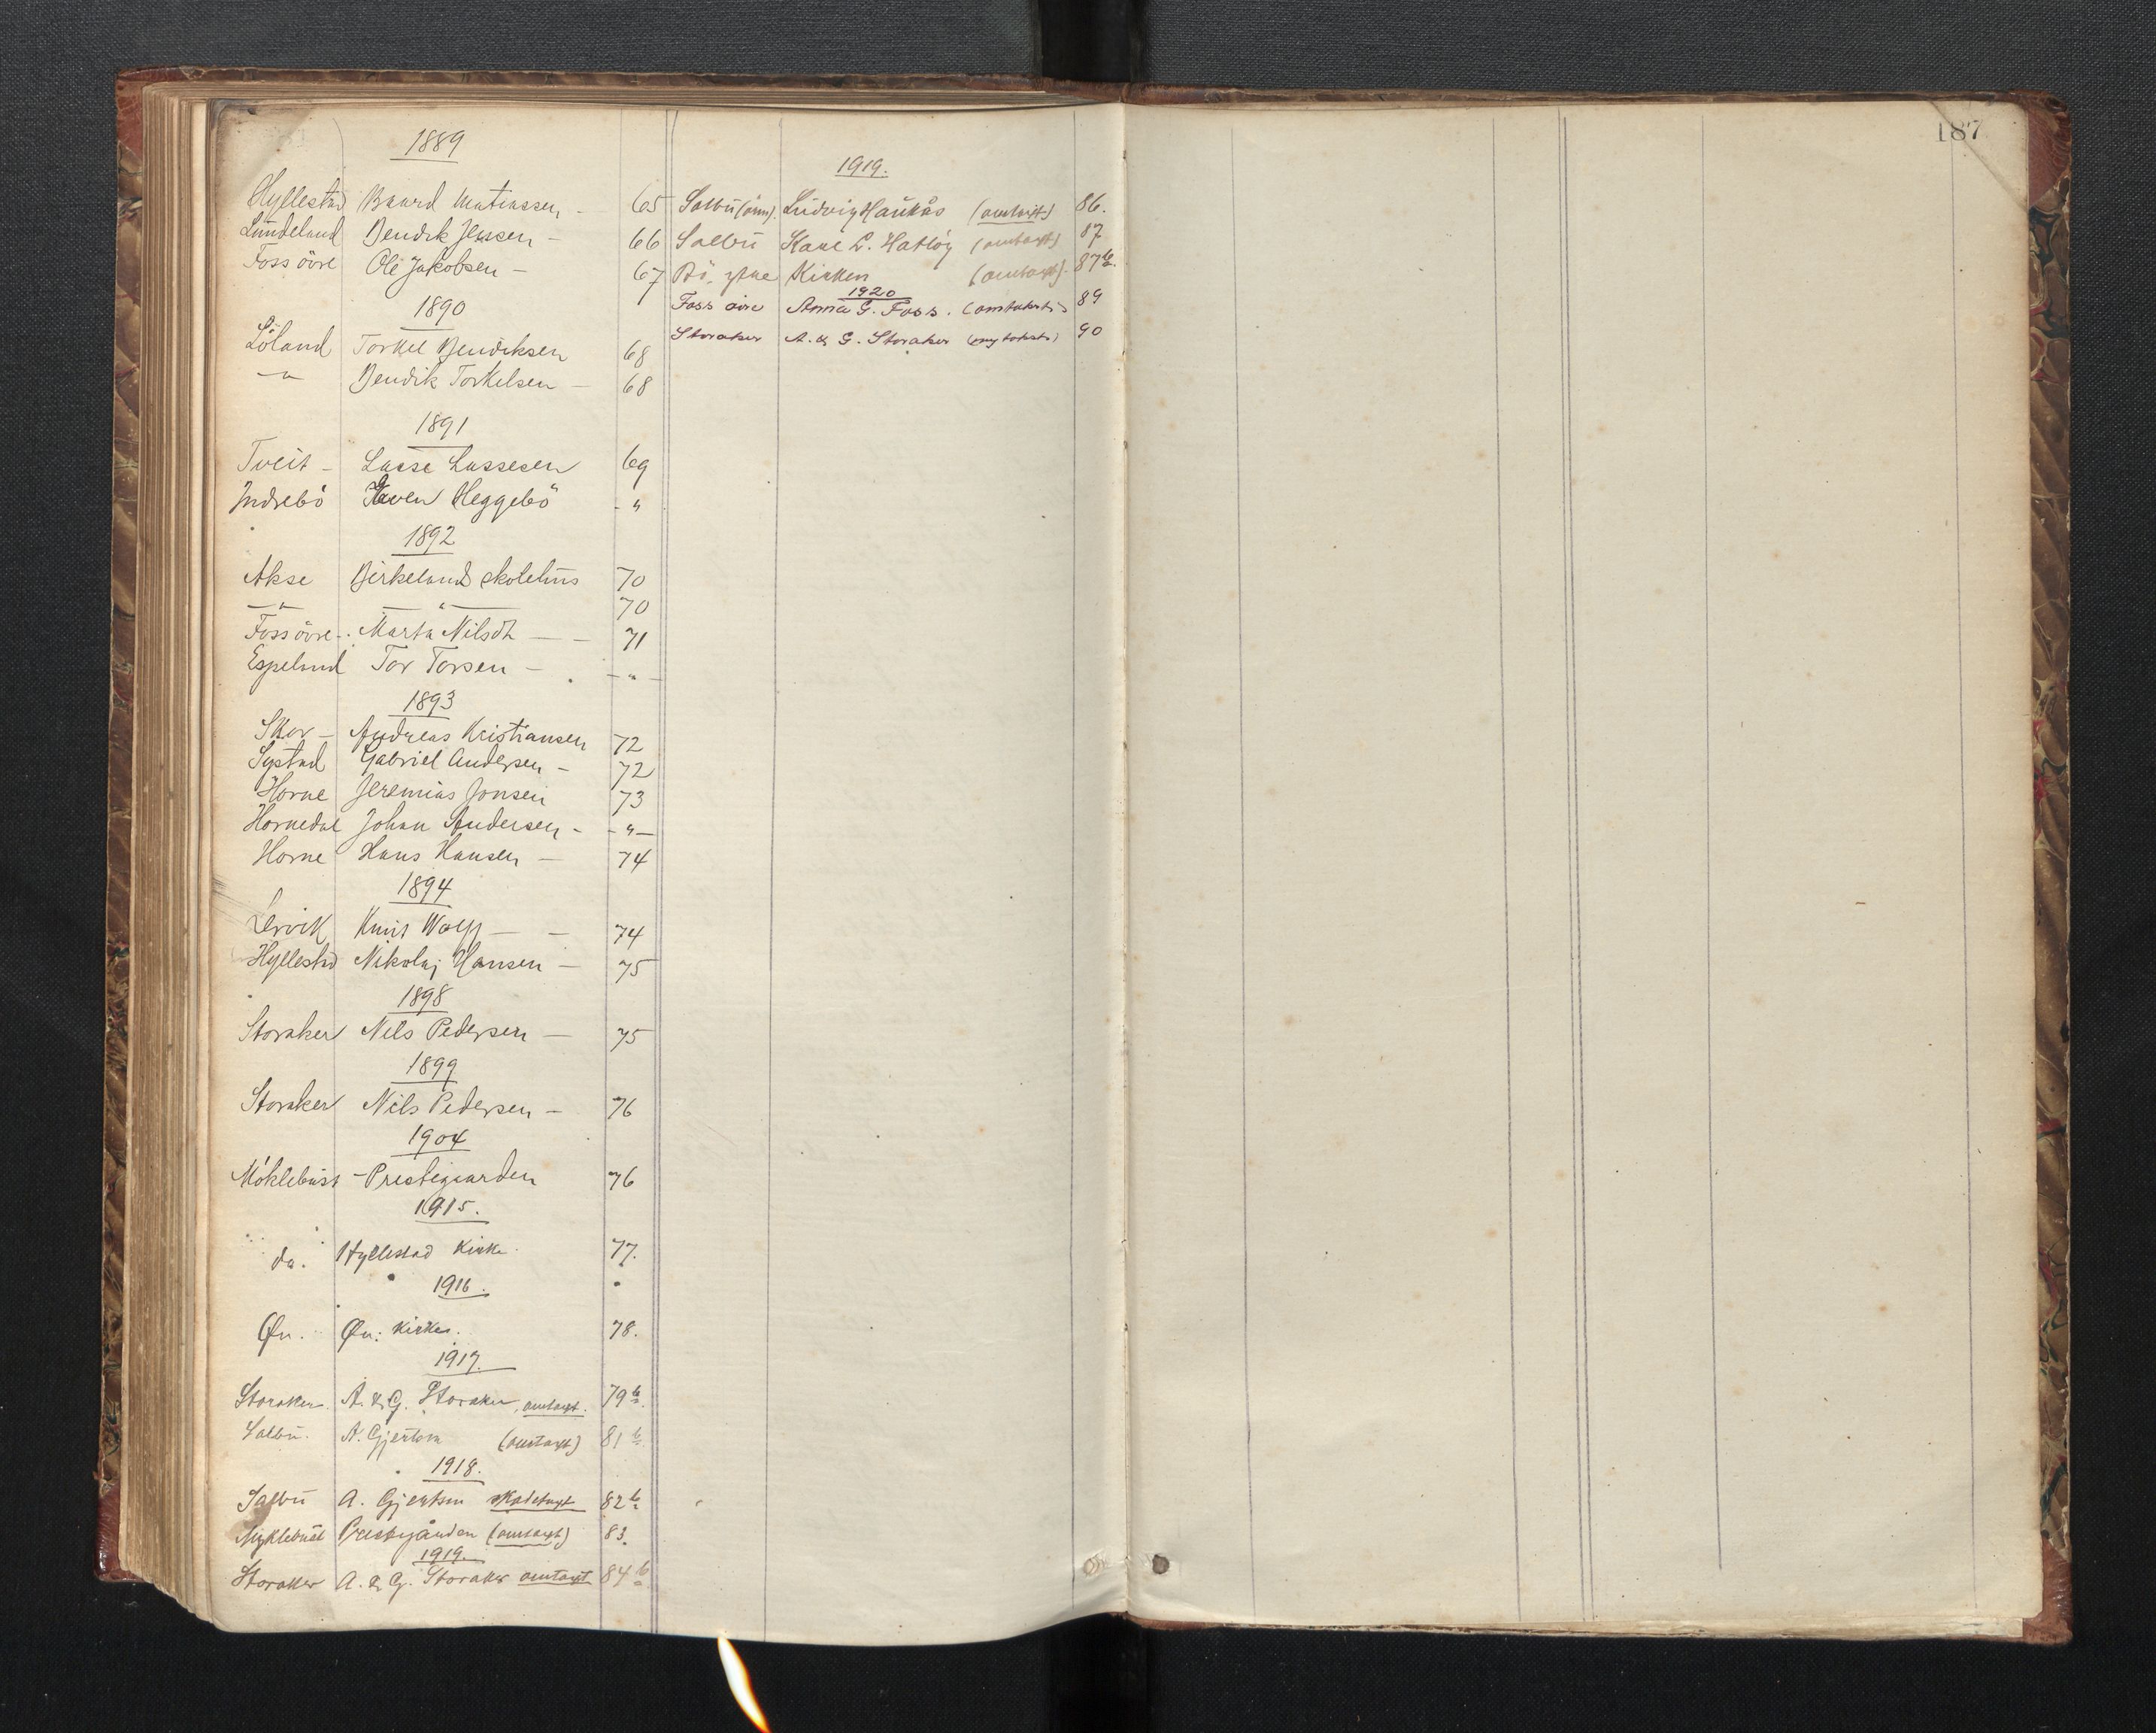 1889
Hyllestad Baard Matiassen - 65
Lundeland Bendik Jenssen - 66
Foss övre Ole Jakobsen - 67
1890
Löland Torkel Bendiksen 68
— " Bendik Torkelsen - 68
1891
Tveit - Lasse Lassesen 69
Indrebö Heggebö - "
1892
Akse Birkeland skolehus 70
— " — — " — 70
Foss övre - Marta Nilsdt - - 71
Espeland Tor Torsen - - " -
1893
Skor - Andreas Kristiansen 72
Systad Gabriel Andersen - 72
Horne Jeremias Jonsen 73
Hornedal Johan Andersen - - " -
Horne Hans Hansen - 74
1894
Lervik Knut - - 74
Hyllestad Nikolaj Hansen - 75
1898
Storaker Nils Pedersen - 75
1899
Storaker Nils Pedersen - 76
1904
Möklebust - Prestegaarden 76
1915.
do. Hyllestad Kirke. 77.
1916.
Øn. Øn: Kirke. 78.
1917.
Storaker. A. & G. Storaker, omtaxt. 79 b.
Salbu. A. Gjertsen (omtaxt) 81 b
1918.
Salbu A. Gjertsen skadetaxt 82 b
Myklebust Prestegården (omtaxt) 83.
1919.
Storaker A. & G. Storaker omtaxt 84 b
1919.
Salbu Ludvig Haukås (omtaxt) 86.
Salbu Karl L. Hatløy (omtaxt) 87
Bö, ytre Kirken (omtaxt). 87 b.
1920
Foss øvre Anna G. Foss. (omtakst) 89
Storaker A. & G. Storaker (omtakst) 90
187